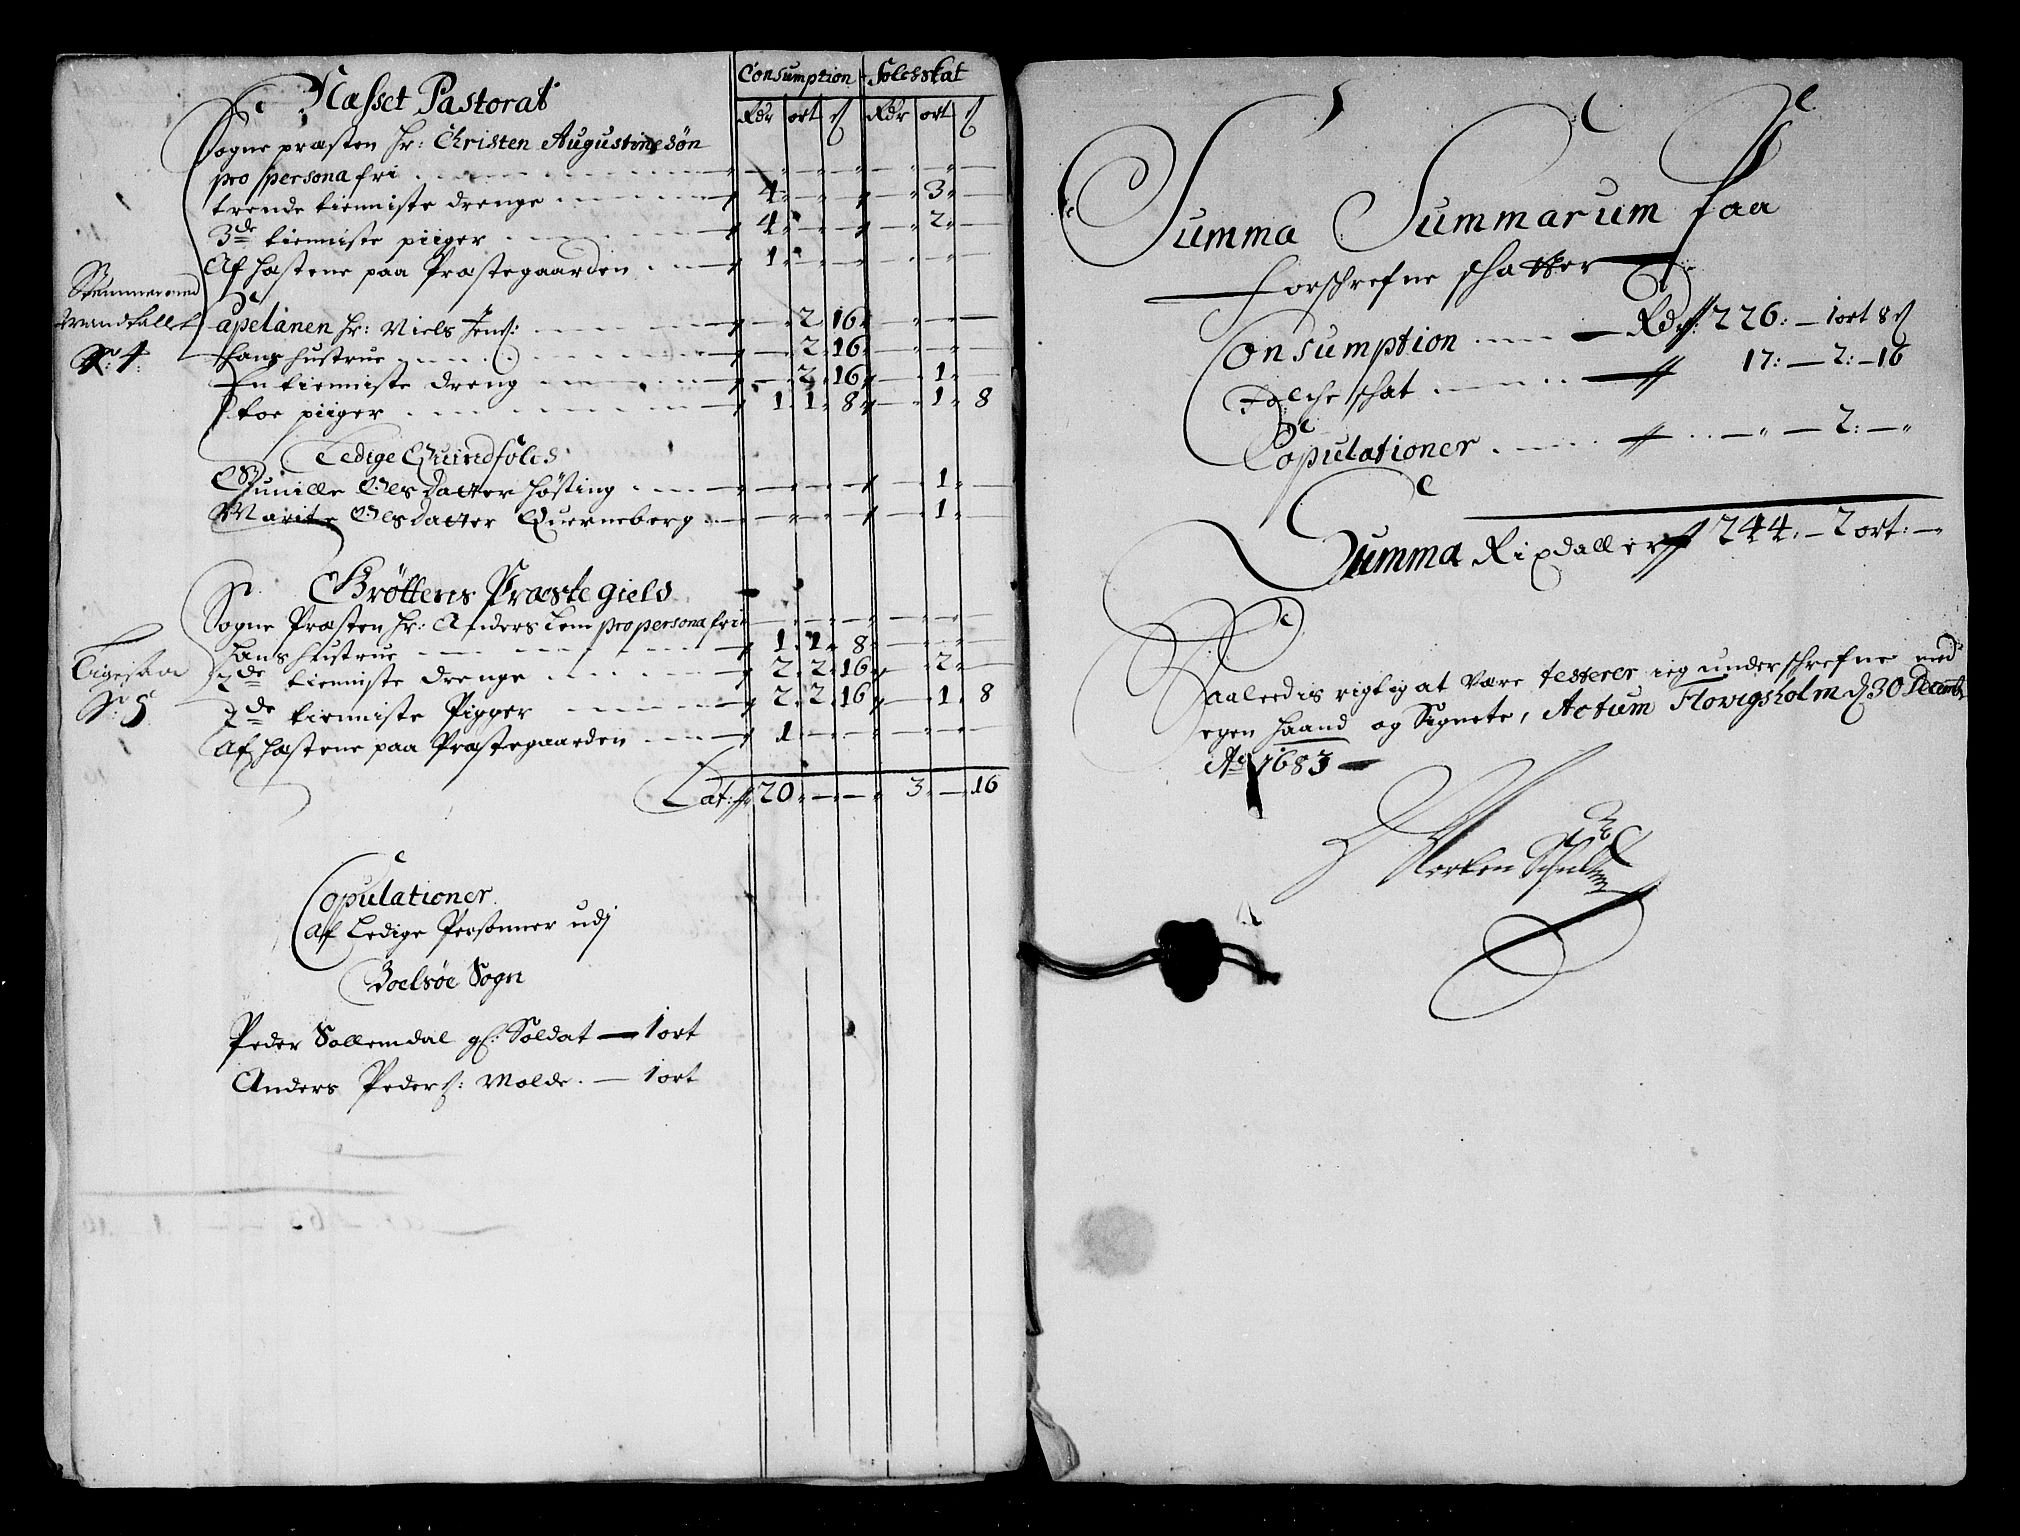 Consumption Folcheskat
Rdr ort ß Rdr ort ß
Næsset Pastorat
Sogne præsten Hr: Christen Augustinesøn
pro persona fri
trende tienniste drenge 4 3
3de tienniste piiger 4 2
Af Hæstene paa Præstegaarden 1
Capelanen Hr: Niels Jens: 2 16
Hans hustrue 2 16
En tienniste dreng 2 16 1
toe piiger 1 1 8 1 8
Stemmer med
Mandtallet
No: 4
Ledige Quindfolck
Gunille Olsdatter Høsting 1
Marite Olsdatter Querneberg 1
Grøttens Præstegield
Sogne Præsten Hr: Anders Lem pro persona fri
Hans hustrue 1 1 8
2de tienniste drenge 2 2 16 2
2de tienniste Pigger 2 2 16 1 8
Af Hæstene paa Præstegaarden 1
Ligesaa
No 5
Lat: 20 3 16
Copulationer
Af Ledige Personner udj
Boelsøe Sogn
Peder Sollemdal gl: Soldat 1 ort
Anders Peders: Molde 1 ort
Summa Summarum faa
forschrefne schatter
Consumption Rdr 226: 1 ort 8 ß
Folche schat 17: 2: 16
Copulationer 2:
Summa Rixdaller 244: 2 ort:
Saaledis rigtig at være testerer ieg underschrefne med
egen Haand og Signete, Actum Flovigsholm d 30 Decembr
Ao 1683
Morten Schult